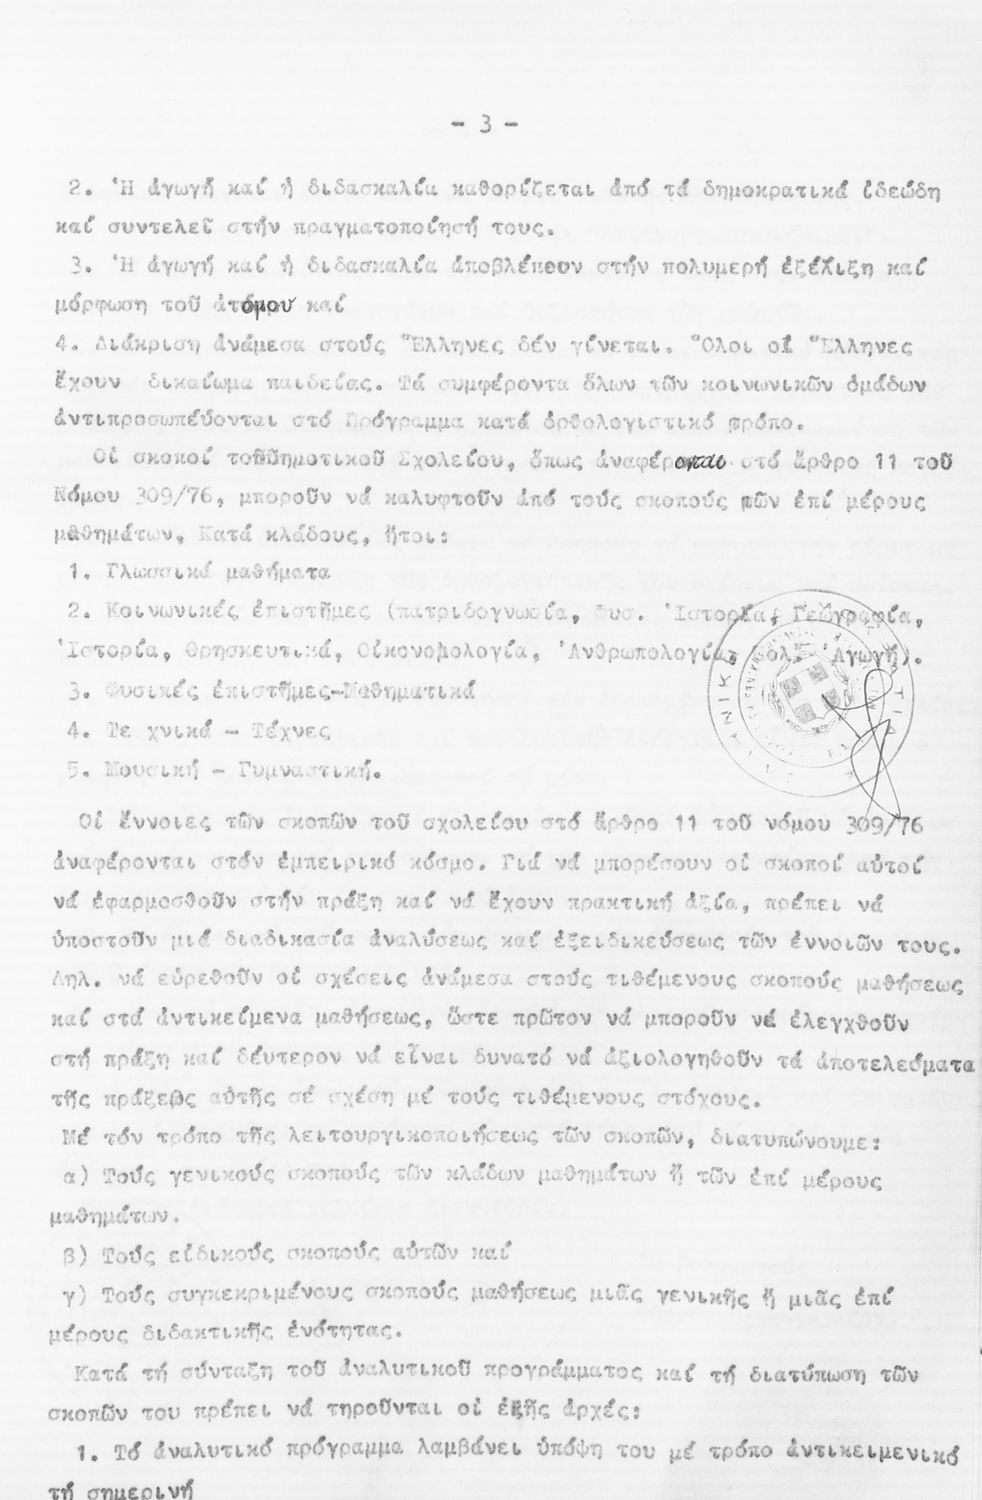 - 3 -
2. Ἡ ἀγωγή καί ἡ διδασκαλία καθορίζεται ἀπό τά δημοκρατικά ἰδεώδη
καί συντελεῖ στήν πραγματοποίησή τους.
3. Ἡ ἀγωγή καί ἡ διδασκαλία ἀποβλέπουν στήν πολυμερή ἐξέλιξη καί
μόρφωση τοῦ ἀτόμου καί
4. Διάκριση ἀνάμεσα στούς Ἕλληνες δέν γίνεται. Ὅλοι οἱ Ἕλληνες
ἔχουν δικαίωμα παιδείας. Τά συμφέροντα ὅλων τῶν κοινωνικῶν ὁμάδων
ἀντιπροσωπεύονται στό Πρόγραμμα κατά ὀρθολογιστικό τρόπο.
Οἱ σκοποί τοῦ Δημοτικοῦ Σχολείου, ὅπως ἀναφέρονται στό ἄρθρο 11 τοῦ
Νόμου 309/76, μποροῦν νά καλυφτοῦν ἀπό τούς σκοπούς τῶν ἐπί μέρους
μαθημάτων, Κατά κλάδους, ἤτοι:
1. Γλωσσικά μαθήματα
2. Κοινωνικές ἐπιστῆμες (πατριδογνωσία, Φυσ. Ἱστορία, Γεωγραφία,
Ἱστορία, Θρησκευτικά, Οἰκονομολογία, Ἀνθρωπολογία, Πολ. Ἀγωγή).
3. Φυσικές ἐπιστῆμες-Μαθηματικά
4. Τε χνικά - Τέχνες
5. Μουσική - Γυμναστική.
Οἱ ἔννοιες τῶν σκοπῶν τοῦ σχολείου στό ἄρθρο 11 τοῦ νόμου 309/76
ἀναφέρονται στόν ἐμπειρικό κόσμο. Γιά νά μπορέσουν οἱ σκοποί αὐτοί
νά ἐφαρμοσθοῦν στήν πράξη καί νά ἔχουν πρακτική ἀξία, πρέπει νά
ὑποστοῦν μιά διαδικασία ἀναλύσεως καί ἐξειδικεύσεως τῶν ἐννοιῶν τους.
Δηλ. νά εὑρεθοῦν οἱ σχέσεις ἀνάμεσα στούς τιθέμενους σκοπούς μαθήσεως
καί στά ἀντικείμενα μαθήσεως, ὥστε πρῶτον νά μποροῦν νά ἐλεγχθοῦν
στή πράξη καί δεύτερον νά εἶναι δυνατό νά ἀξιολογηθοῦν τά ἀποτελεσματα
τῆς πράξεως αὐτῆς σέ σχέση μέ τούς τιθέμενους στόχους.
Μέ τόν τρόπο τῆς λειτουργικοποιήσεως τῶν σκοπῶν, διατυπώνουμε:
α) Τούς γενικούς σκοπούς τῶν κλάδων μαθημάτων ἤ τῶν ἐπί μέρους
μαθημάτων.
β) Τούς εἰδικούς σκοπούς αὐτῶν καί
γ) Τούς συγκεκριμένους σκοπούς μαθήσεως μιᾶς γενικῆς ἤ μιᾶς ἐπί
μέρους διδακτικῆς ἑνότητας.
Κατά τή σύνταξη τοῦ ἀναλυτικοῦ προγράμματος καί τή διατύπωση τῶν
σκοπῶν του πρέπει νά τηροῦνται οἱ ἑξῆς ἀρχές:
1. Τό ἀναλυτικό πρόγραμμα λαμβάνει ὑπόψη του μέ τρόπο ἀντικειμενικό
τή σημερινή